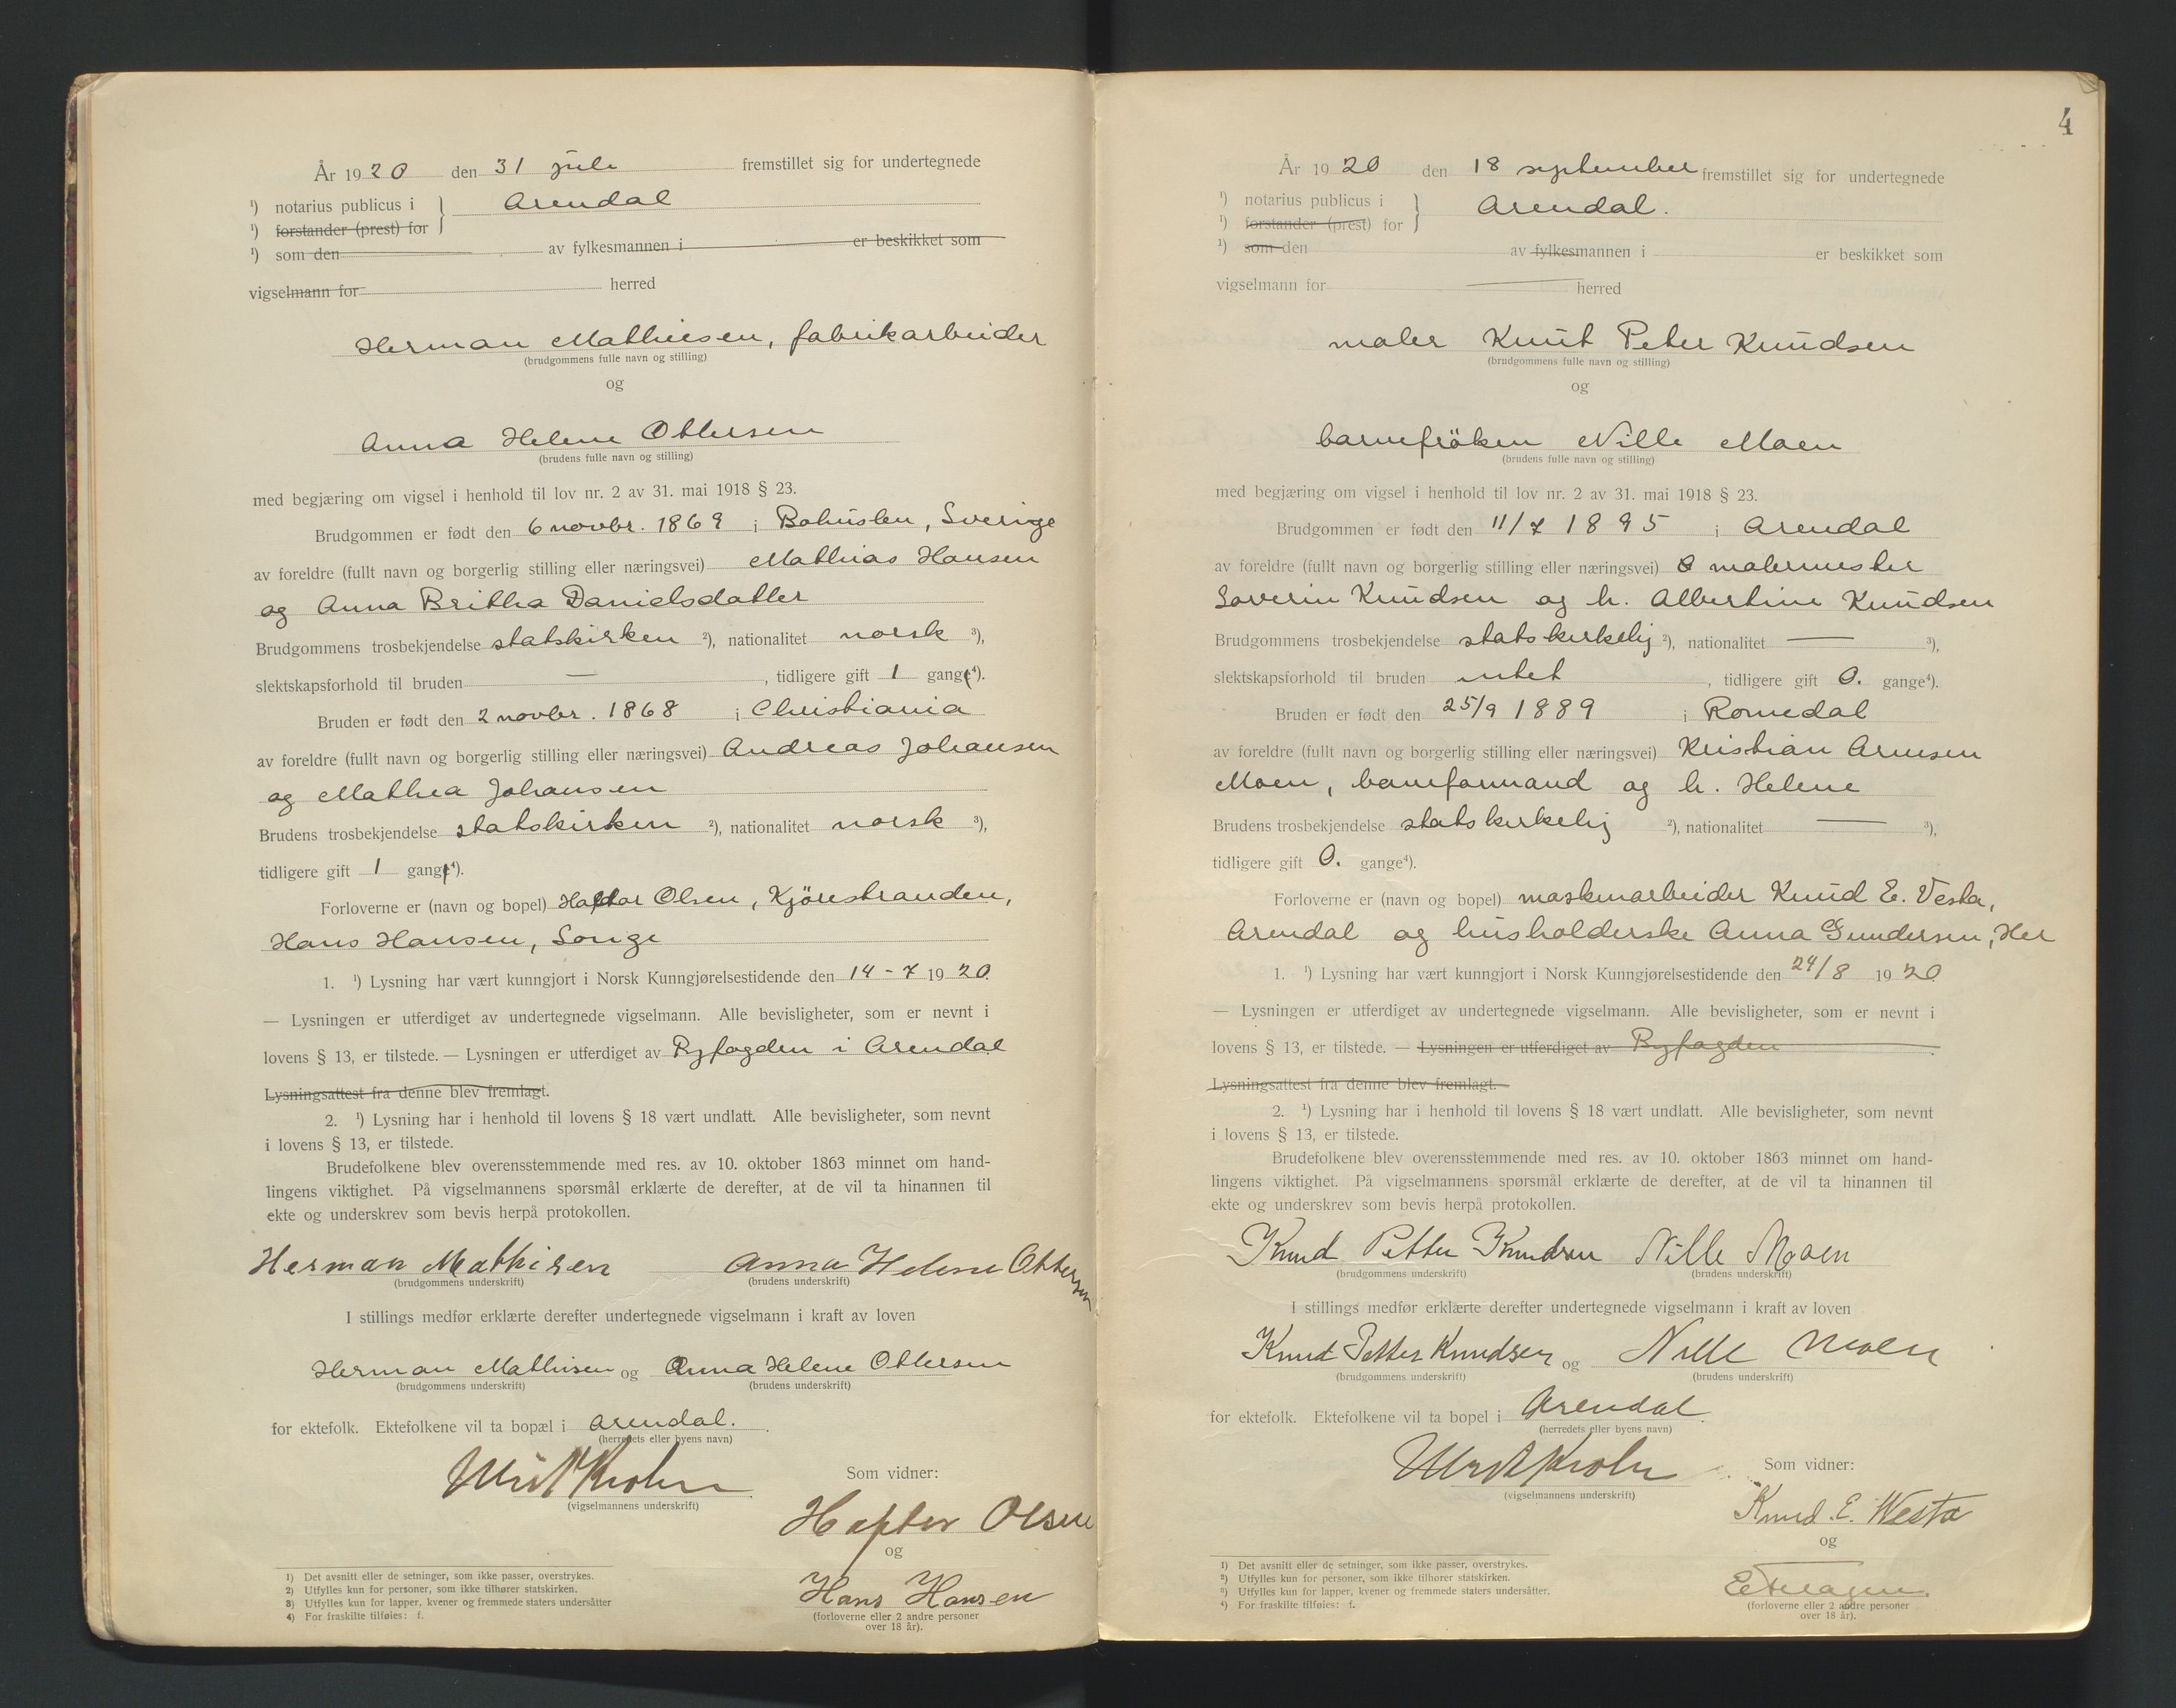 År 1920 den 31 jule fremstillet sig for undertegnede
¹) notarius publicus i
Arendal
¹) forstander (prest) for
¹) som den av fylkesmannen i er beskikket som
vigselmann for herred
Herman Mathiesen, fabrikarbeider
(brudgommens fulle navn og stilling)
og
Anna Helene Ottersen
(brudens fulle navn og stilling)
med begjæring om vigsel i henhold til lov nr. 2 av 31. mai 1918 § 23.
Brudgommen er født den 6 novbr. 1869 i Bohuslen, Sverige
av foreldre (fullt navn og borgerlig stilling eller næringsvei) Mathias Hansen
og Anna Britha Danielsdatter
Brudgommens trosbekjendelse statskirken ²), nationalitet norsk ³),
slektskapsforhold til bruden — , tidligere gift 1 gange⁴).
Bruden er født den 2 novbr. 1868 i Christiania
av foreldre (fullt navn og borgerlig stilling eller næringsvei) Andreas Johansen
og Mathea Johansen
Brudens trosbekjendelse statskirken ²), nationalitet norsk ³),
tidligere gift 1 gange⁴).
Forloverne er (navn og bopel) Olsen, Kjörestranden,
Hans Hansen, Songe
1. ¹) Lysning har vært kunngjort i Norsk Kunngjørelsestidende den 14-7 1920.
— Lysningen er utferdiget av undertegnede vigselmann. Alle bevisligheter, som er nevnt i
lovens § 13, er tilstede. — Lysningen er utferdiget av Byfogden i Arendal
Lysningsattest fra denne blev fremlagt.
2. ¹) Lysning har i henhold til lovens § 18 vært undlatt. Alle bevisligheter, som nevnt
i lovens § 13, er tilstede.
Brudefolkene blev overensstemmende med res. av 10. oktober 1863 minnet om hand-
lingens viktighet. På vigselmannens spørsmål erklærte de derefter, at de vil ta hinannen til
ekte og underskrev som bevis herpå protokollen.
Herman Mathisen Anna Helene Ottersen
(brudgommens underskrift) (brudens underskrift)
I stillings medfør erklærte derefter undertegnede vigselmann i kraft av loven
Herman Mathisen og Anna Helene Ottersen
(brudgommens underskrift) (brudens underskrift)
for ektefolk. Ektefolkene vil ta bopæl i Arendal.
(herredets eller byens navn)
Krohn
(vigselmannens underskrift)
Som vidner:
Hafter Olsen
og
Hans Hansen
(forloverne eller 2 andre personer
over 18 år).
1) Det avsnitt eller de setninger, som ikke passer, overstrykes.
2) Utfylles kun for personer, som ikke tilhører statskirken.
3) Utfylles kun for lapper, kvener og fremmede staters undersåtter
4) For fraskilte tilføies: f.
4
År 1920 den 18 september fremstillet sig for undertegnede
¹) notarius publicus i
Arendal.
¹) forstander (prest) for
¹) som den av fylkesmannen i er beskikket som
vigselmann for herred
maler Knut Peter Knudsen
(brudgommens fulle navn og stilling)
og
barnefröken Nille Moen
(brudens fulle navn og stilling)
med begjæring om vigsel i henhold til lov nr. 2 av 31. mai 1918 § 23.
Brudgommen er født den 11/7 1895 i Arendal
av foreldre (fullt navn og borgerlig stilling eller næringsvei) malermester
Soverin Knudsen og h. Albertine Knudsen
Brudgommens trosbekjendelse statskirkelig ²), nationalitet — ³),
slektskapsforhold til bruden intet , tidligere gift 0. gange⁴).
Bruden er født den 25/9 1889 i Romedal
av foreldre (fullt navn og borgerlig stilling eller næringsvei) Kristian Arnesen
Moen, baneformand og h. Helene
Brudens trosbekjendelse statskirkelig ²), nationalitet — ³),
tidligere gift 0. gange⁴).
Forloverne er (navn og bopel) maskinarbeider Knud E. Vesta,
Arendal og husholderske Anna Gundersen, Her
1. ¹) Lysning har vært kunngjort i Norsk Kunngjørelsestidende den 24/8 1920
— Lysningen er utferdiget av undertegnede vigselmann. Alle bevisligheter, som er nevnt i
lovens § 13, er tilstede. — Lysningen er utferdiget av Byfogden
Lysningsattest fra denne blev fremlagt.
2. ¹) Lysning har i henhold til lovens § 18 vært undlatt. Alle bevisligheter, som nevnt
i lovens § 13, er tilstede.
Brudefolkene blev overensstemmende med res. av 10. oktober 1863 minnet om hand-
lingens viktighet. På vigselmannens spørsmål erklærte de derefter, at de vil ta hinannen til
ekte og underskrev som bevis herpå protokollen.
Knud Petter Knudsen Nille Moen
(brudgommens underskrift) (brudens underskrift)
I stillings medfør erklærte derefter undertegnede vigselmann i kraft av loven
Knud Petter Knudsen og Nille Moen
(brudgommens underskrift) (brudens underskrift)
for ektefolk. Ektefolkene vil ta bopel i Arendal.
(herredets eller byens navn)
Krohn
(vigselmannens underskrift)
Som vidner:
Knud. E. Westa
og
(forloverne eller 2 andre personer
over 18 år).
¹) Det avsnitt eller de setninger, som ikke passer, overstrykes.
²) Utfylles kun for personer, som ikke tilhører statskirken.
³) Utfylles kun for lapper, kvener og fremmede staters undersåtter.
⁴) For fraskilte tilføies: f.